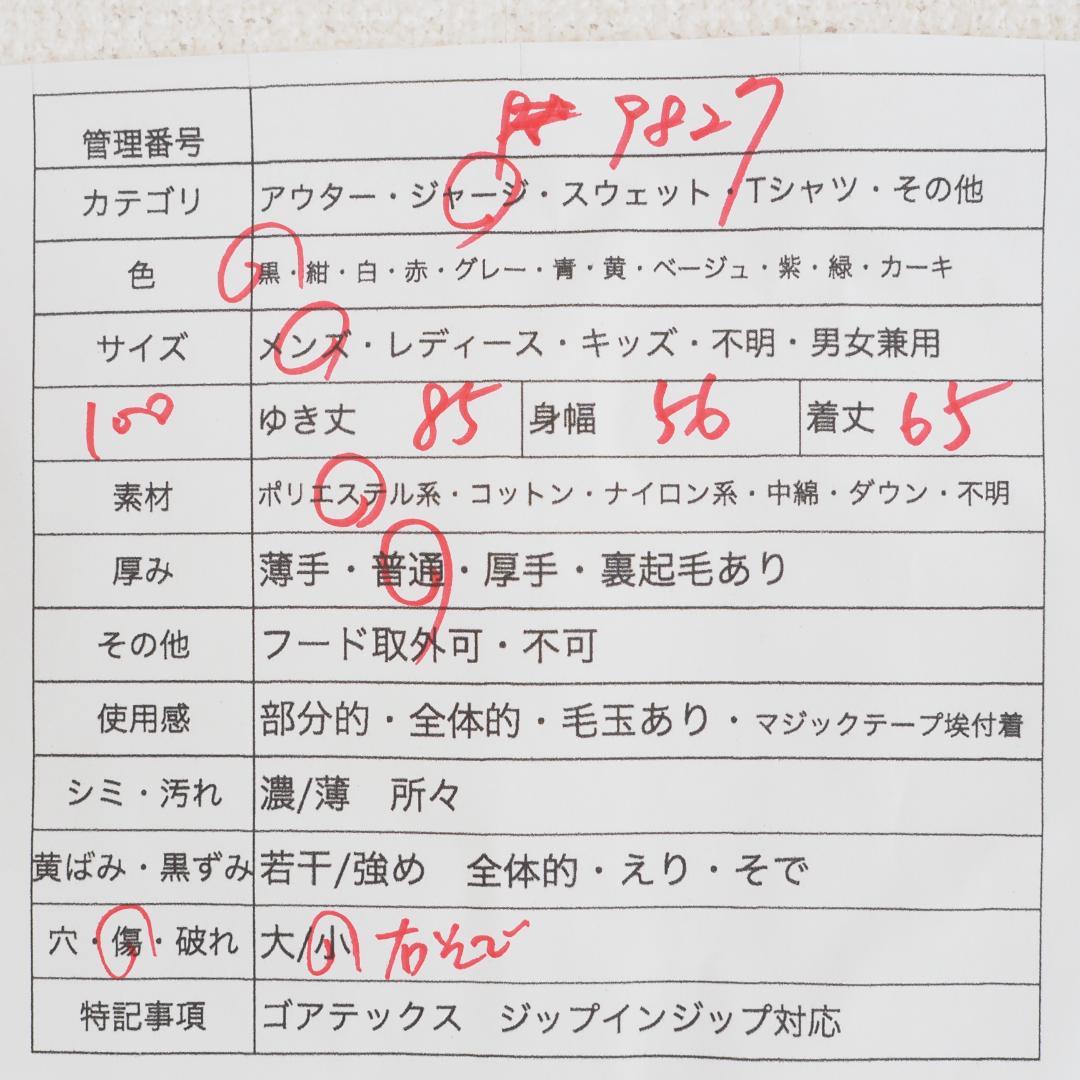 管理番号 9827
カテゴリ アウター・ジャージ・スウェット・Tシャツ・その他
色 黒・紺・白・赤・グレー・青・黄・ベージュ・紫・緑・カーキ
サイズ メンズ・レディース・キッズ・不明・男女兼用
100 ゆき丈 85 身幅 56 着丈 65
素材 ポリエステル系・コットン・ナイロン系・中綿・ダウン・不明
厚み 薄手・普通・厚手・裏起毛あり
その他 フード取外可・不可
使用感 部分的・全体的・毛玉あり・マジックテープ埃付着
シミ・汚れ 濃/薄 所々
黄ばみ・黒ずみ 若干/強め 全体的・えり・そで
穴・傷・破れ 大/小 右そで
特記事項 ゴアテックス ジップインジップ対応